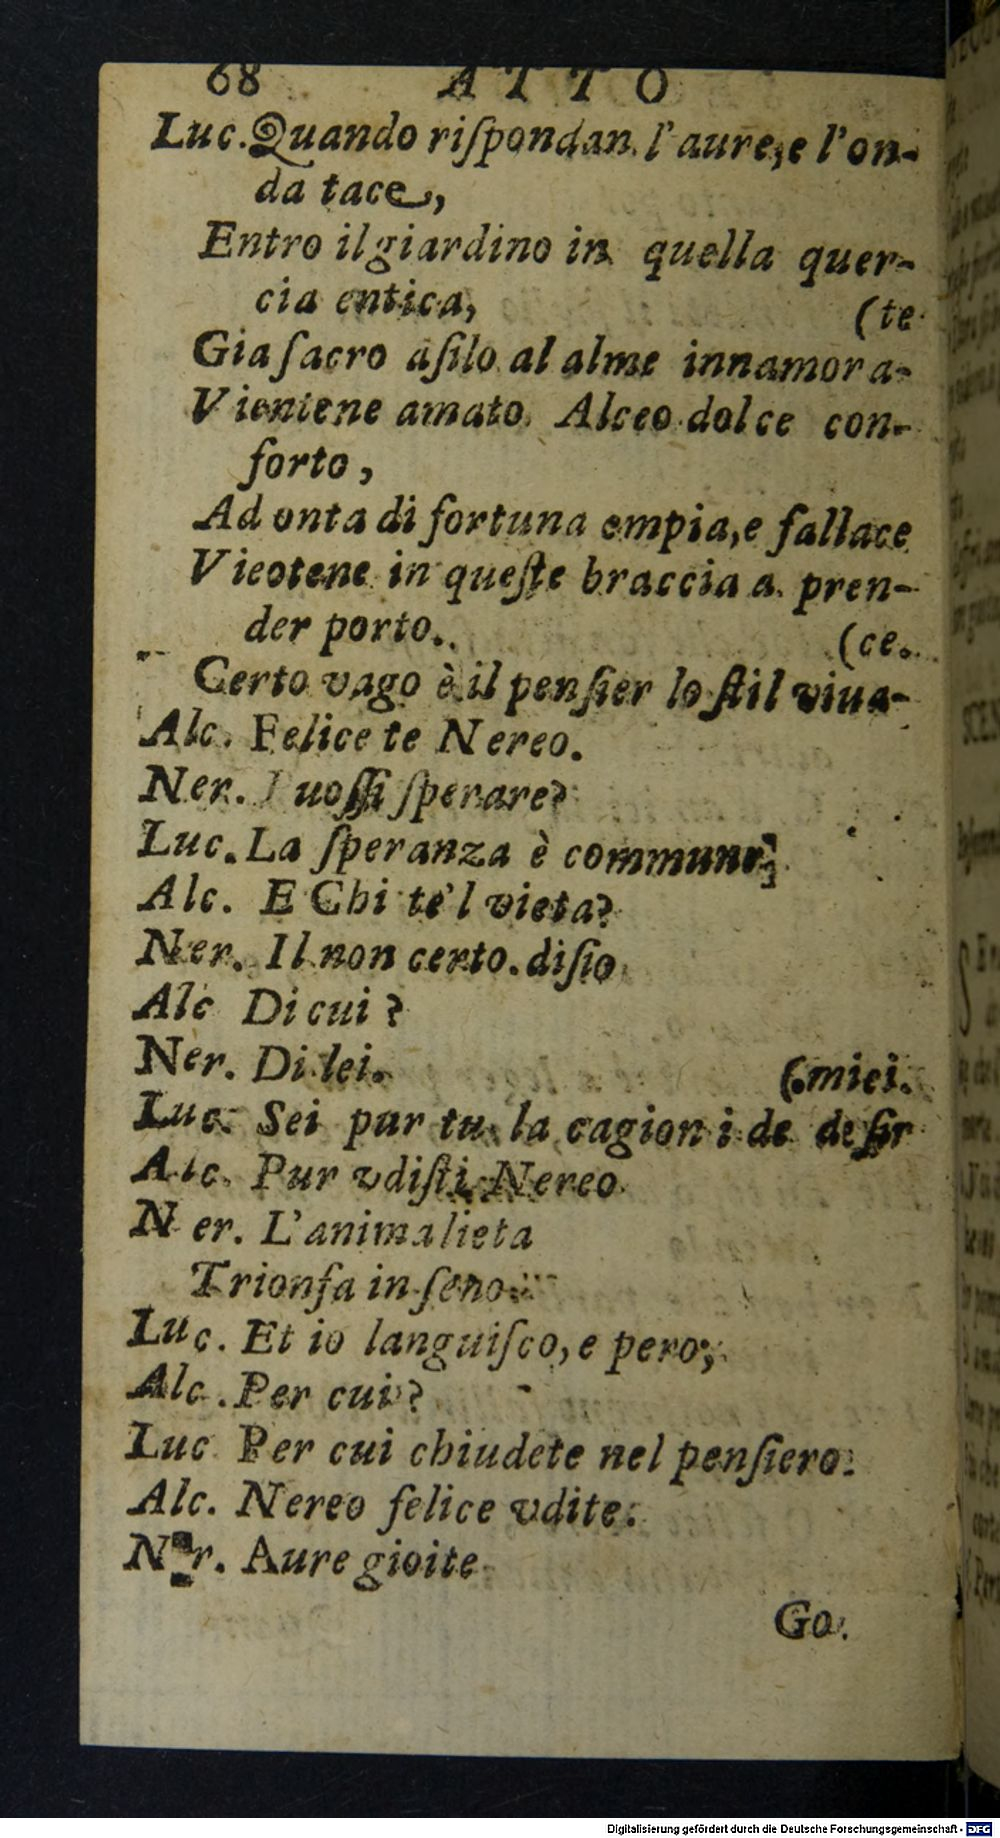 68 ATTO
Luc. Quando riſpondan l'aure, e l'on-
da tace,
Entro il giardino in quella quer-
cia entica, (te
Gia ſacro aſilo al alme innamora-
Vientene amato Alceo dolce con-
forto,
Ad onta di fortuna empia, e fallace
Vieotene in queſte braccia a pren-
der porto. (ce.
Certo vago è il penſier lo ſtil viua-
Alc. Felice te Nereo.
Ner. uoſſi ſperare?
Luc. La ſperanza è commune,
Alc. E Chi te'l vieta?
Ner. Il non certo diſio
Alc Di cui ?
Ner. Di lei. (miei.
Luc. Sei pur tu la cagion i de deſir
Alc. Pur vdiſti Nereo
Ner. L'anima lieta
Trionfa in ſeno
Luc. Et io languiſco, e pero;
Alc. Per cui ?
Luc Per cui chiudete nel penſiero.
Alc. Nereo felice vdite.
Ner. Aure gioite
Go.
Digitalisierung gefördert durch die Deutsche Forschungsgemeinschaft - DFG